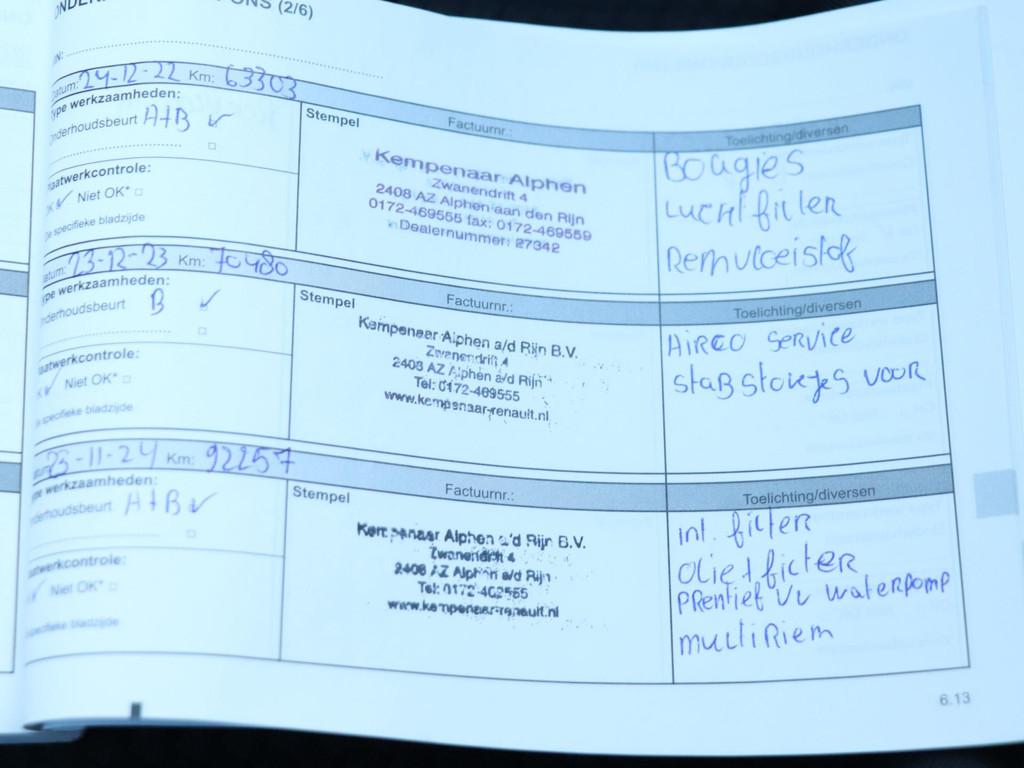 ONS (2/6)
Datum: 24-12-22 Km: 63303
ype werkzaamheden:
nderhoudsbeurt A+B ✓
aatwerkcontrole:
K ✓ Niet OK* □
e specifieke bladzijde
Stempel
Factuurnr.:
Kempenaar Alphen
Zwanendrift 4
2408 AZ Alphen aan den Rijn
0172-469555 fax: 0172-469559
Dealernummer: 27342
Toelichting/diversen
Bougies
Luchtfilter
Remvloeistof
atum: 23-12-23 Km: 70480
ype werkzaamheden:
nderhoudsbeurt B ✓
aatwerkcontrole:
K ✓ Niet OK* □
specifieke bladzijde
Stempel
Factuurnr.:
Kempenaar Alphen a/d Rijn B.V.
Zwanendrift 4
2408 AZ Alphen a/d Rijn
Tel: 0172-469555
www.kempenaar-renault.nl
Toelichting/diversen
Airco service
staBstokjes voor
25-11-24 Km: 92257
pe werkzaamheden:
derhoudsbeurt A+B ✓
atwerkcontrole:
✓ Niet OK* □
specifieke bladzijde
Stempel
Factuurnr.:
Kempenaar Alphen a/d Rijn B.V.
Zwanendrift 4
2408 AZ Alphen a/d Rijn
www.kempenaar-renault.nl
Toelichting/diversen
int. filter
olie + filter
PRentief VV waterpomp
multiRiem
6.13